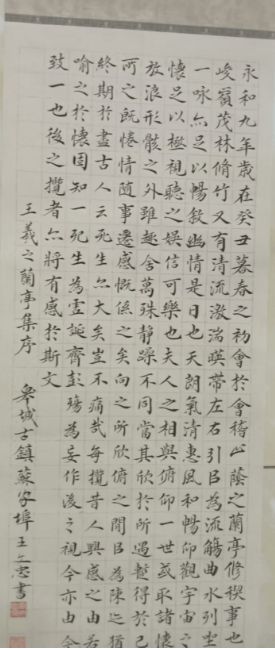 永和九年歲在癸丑暮春之初會於會稽山蔭之蘭亭修禊事也
峻嶺茂林脩竹又有清流激湍暎帶左右引㠯為流觴曲水列坐
一咏亦足以暢敘幽情是日也天朗氣清惠風和暢仰觀宇宙之
懷足以極視聽之娛信可樂也夫人之相與俯仰一世或取諸懷
放浪形骸之外雖趣舍萬殊靜躁不同當其欣於所遇暫得於己
所之既惓情随事遷感慨係之矣向之所欣俯之閒㠯為陳迹猶
終期於盡古人云死生亦大矣豈不痛哉每攬昔人興感之由若
喻之於懷固知一死生為虛誕齊彭殤為妄作後之視今亦由今
致一也後之攬者亦將有感於斯文
王羲之蘭亭集序 皋城古鎮蘇家埠王書